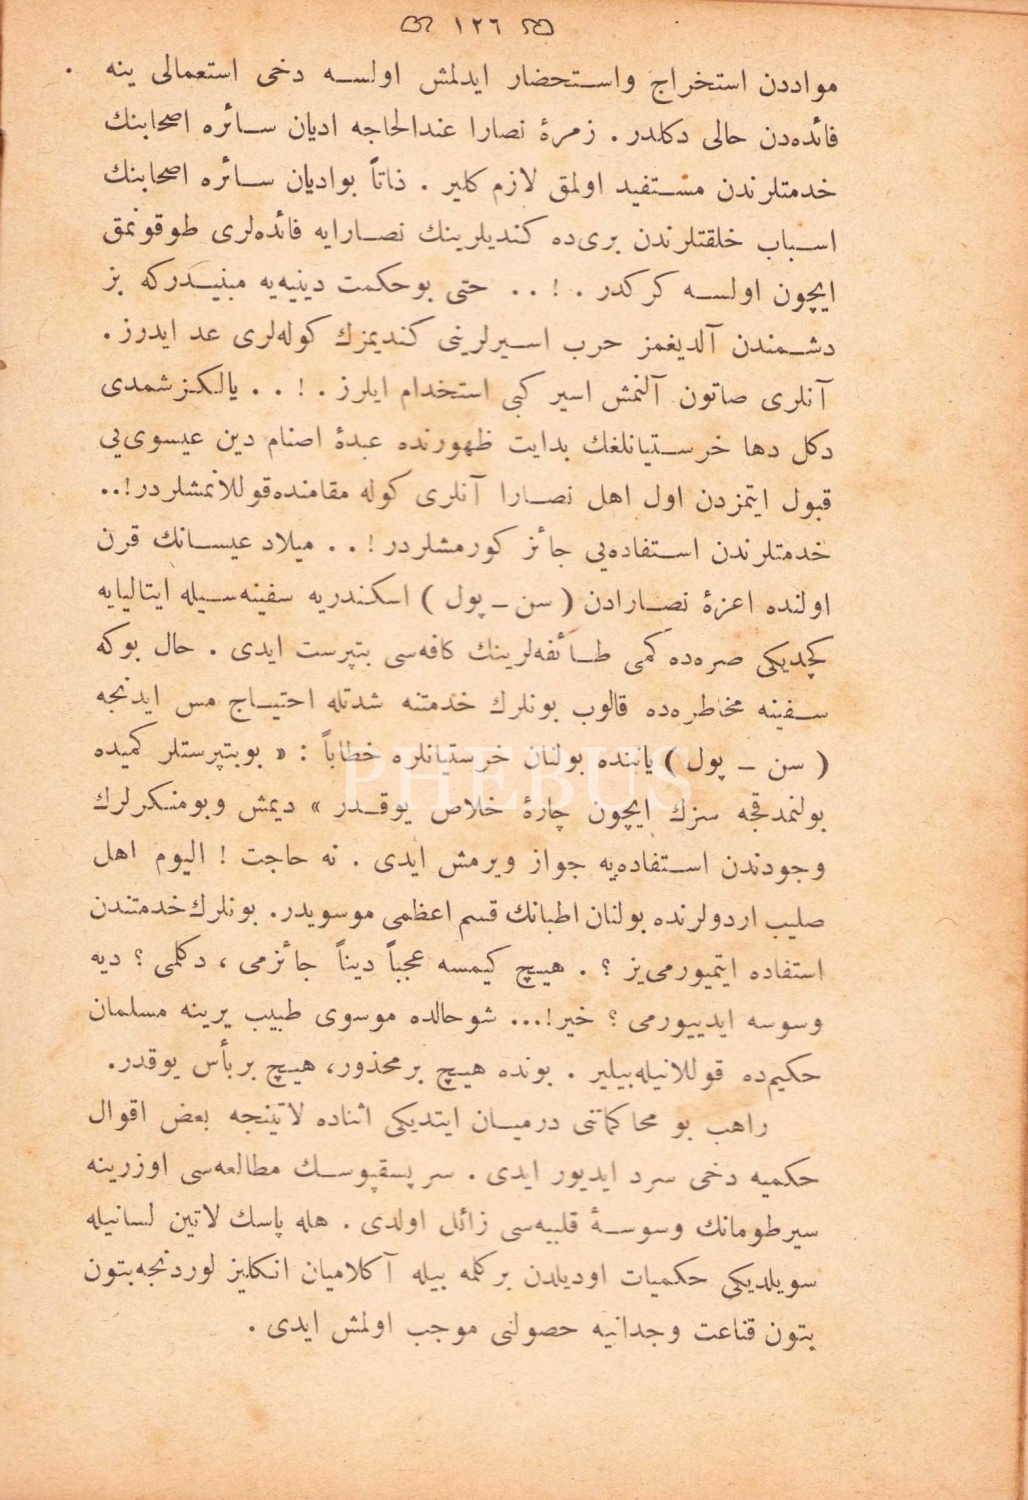 ١٢٦
موا‌ددن استخراج واستحضار ايدلمش اولسه دخى استعمالى ينه
فائده‌دن حالى دكلدر . زمرهٔ نصارا عندالحاجه اديان سائره اصحابنك
خدمتلرندن مستفيد اولمق لازم كلير . ذاتاً بواديان سائره اصحابنك
اسباب خلقتلرندن برى‌ده كنديلرينك نصارايه فائده‌لرى طوقونمق
ايچون اولسه كركدر . ! . . حتى بوحكمت دينيه‌يه مبنيدركه بز
دشمندن آلديغمز حرب اسيرلرينى كنديمزك كوله‌لرى عد ايدرز .
آنلرى صاتون آلنمش اسير كبى استخدام ايلرز . ! . . يالكزشمدى
دكل دها خرستيانلغك بدايت ظهورنده عبدهٔ اصنام دين عيسوى‌يى
قبول ايتمزدن اول اهل نصارا آنلرى كوله مقامنده‌قوللانمشلردر!..
خدمتلرندن استفاده‌يى جائز كورمشلردر ! . . ميلاد عيسانك قرن
اولنده اعزهٔ نصارادن ( سن ـ پول ) اسكندريه سفينه‌سيله ايتاليايه
كچديكى صره‌ده كمى طائفه‌لرينك كافه‌سى بتپرست ايدى . حال بوكه
سفينه مخاطره‌ده قالوب بونلرك خدمتنه شدتله احتياج مس ايدنجه
( سن ـ پول ) ياننده بولنان خرستيانلره خطاباً : « بوبتپرستلر كميده
بولنمدقجه سزك ايچون چارهٔ خلاص يوقدر » ديمش وبومنكرلرك
وجودندن استفاده‌يه جواز ويرمش ايدى . نه حاجت ! اليوم اهل
صليب اردولرنده بولنان اطبانك قسم اعظمى موسويدر. بونلرك خدمتندن
استفاده ايتميورمى‌يز ؟ . هيچ كيمسه عجباً ديناً جائزمى ، دكلمى ؟ ديه
وسوسه ايدييورمى ؟ خير!... شوحالده موسوى طبيب يرينه مسلمان
حكيم‌ده قوللانيله‌بيلير . بونده هيچ برمحذور، هيچ بربأس يوقدر.
راهب بو محاكماتنى درميان ايتديكى اثناده لاتينجه بعض اقوال
حكميه دخى سرد ايديور ايدى . سرپسقپوسك مطالعه‌سى اوزرينه
سيرطومانك وسوسهٔ قلبيه‌سى زائل اولدى . هله پاسك لاتين لسانيله
سويلديكى حكميات اوديلدن بركلمه بيله آكلاميان انكليز لوردنجه‌بتون
بتون قناعت وجدانيه حصولنى موجب اولمش ايدى .
PHEBUS